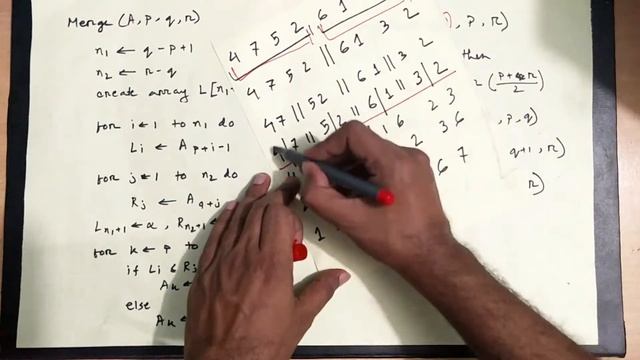 Merge (A, P, q, r)
n1 ← q-p+1
n2 ← r-q
create array L[n1
for i←1 to n1 do
Li ← A p+i-1
for j←1 to n2 do
Rj ← A q+j
Ln1+1 ← α, Rn2+1 ←
for k ← P to
if Li ≤ Rj
Ak ←
else
Ak ←
4 7 5 2 || 6 1
4 7 5 2 || 6 1 3 2
4 7 || 5 2 || 6 1 || 3 2
| 7 || 5 | 2 || 6 | 1 || 3 | 2
1 6 2 3
2 3 6
6 7
1
), P, r)
then
, p, q)
q+1, r)
r)